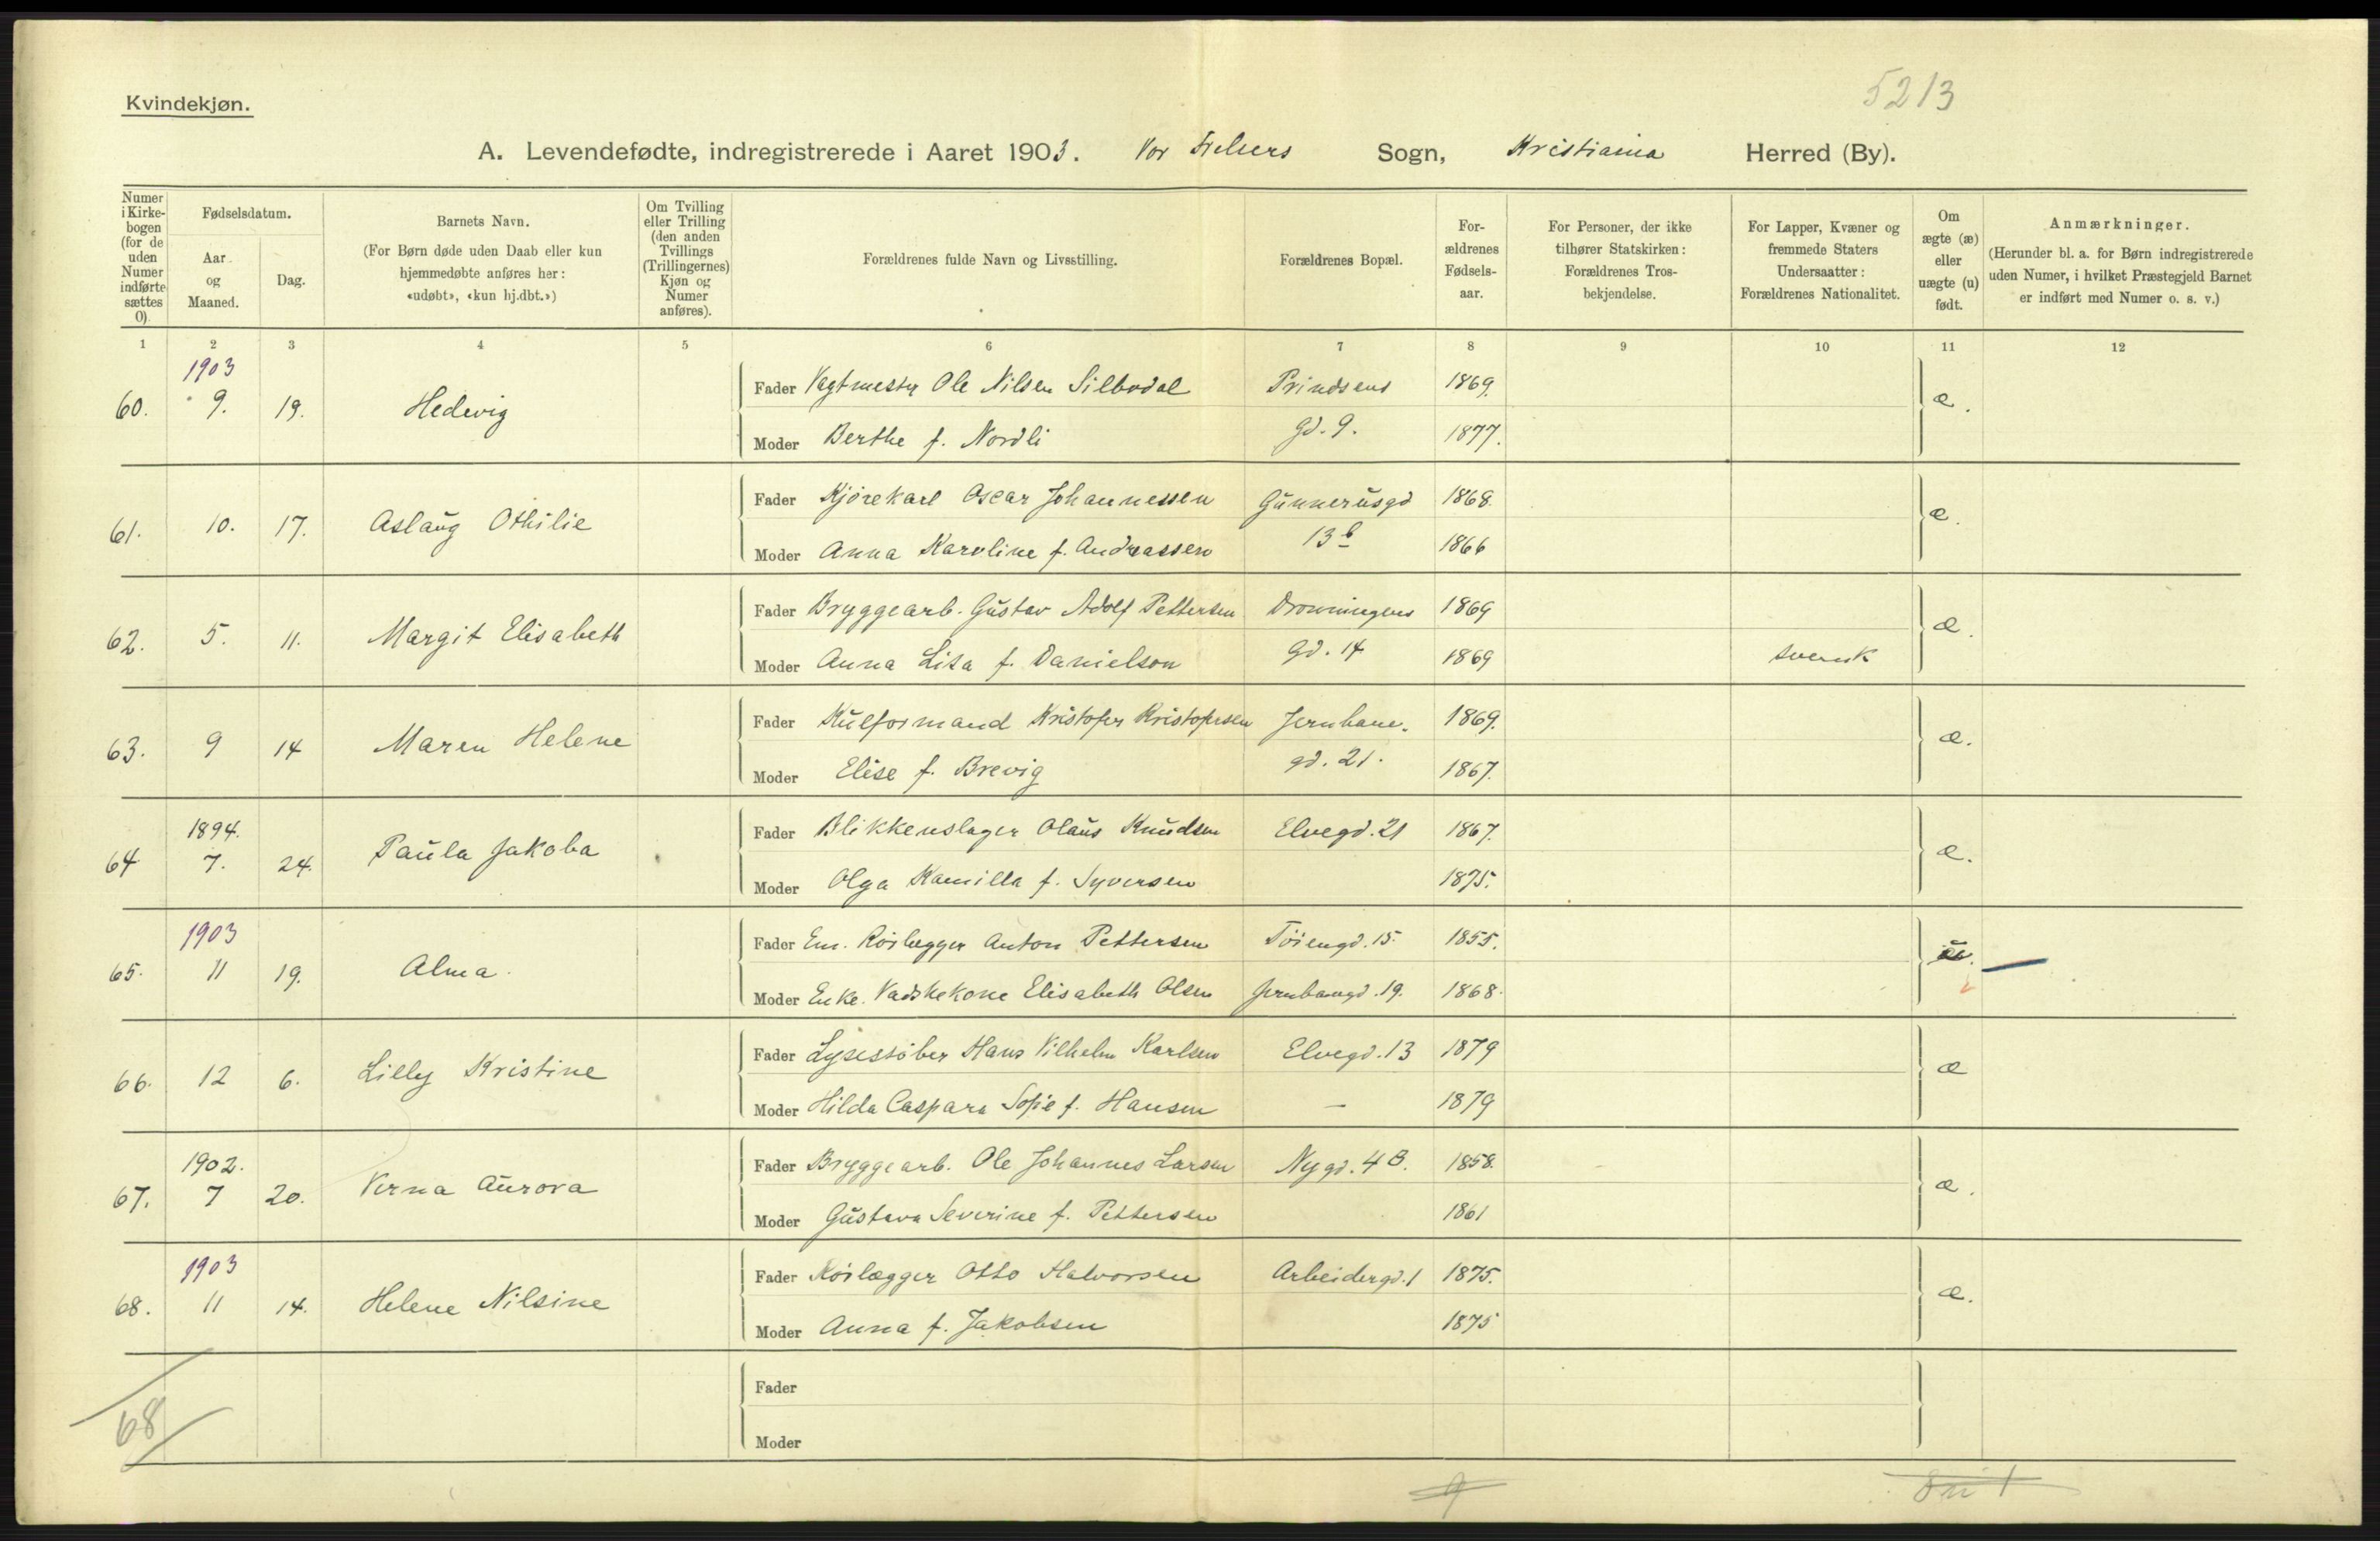 5213
Kvindekjøn.
A. Levendefødte, indregistrerede i Aaret 1903. Vor Frelsers Sogn, Kristiania Herred (By).
Numer i Kirkebogen (for de uden Numer indførte sættes 0).
Fødselsdatum.
Aar og Maaned.
Dag.
Barnets Navn.
(For Børn døde uden Daab eller kun hjemmedøbte anføres her: «udøbt», «kun hj.dbt.»)
Om Tvilling eller Trilling (den anden Tvillings (Trillingernes) Kjøn og Numer anføres).
Forældrenes fulde Navn og Livsstilling.
Forældrenes Bopæl.
Forældrenes Fødselsaar.
For Personer, der ikke tilhører Statskirken: Forældrenes Trosbekjendelse.
For Lapper, Kvæner og fremmede Staters Undersaatter: Forældrenes Nationalitet.
Om ægte (æ) eller uægte (u) født.
Anmærkninger.
(Herunder bl. a. for Børn indregistrerede uden Numer, i hvilket Præstegjeld Barnet er indført med Numer o. s. v.)
1 2 3 4 5 6 7 8 9 10 11 12
1903
60. 9. 19. Hedevig Fader Vagtmester Ole Nilsen Silbodal Prindsens 1869. æ.
Moder Berthe f. Nordli gd. 9. 1877.
61. 10. 17. Aslaug Othilie Fader Kjørekarl Oscar Johannessen Gunnerusgd 1868. æ.
Moder Anna Karoline f. Andreassen 13b 1866
62. 5. 11. Margit Elisabeth Fader Bryggearb. Gustav Adolf Pettersen Dronningens 1869 æ.
Moder Anna Lisa f. Danielson gd. 14 1869 svensk
63. 9 14 Maren Helene Fader Kulformand Kristofer Kristofersen Jernbane- 1869. æ.
Moder Elise f. Brevig gd. 21. 1867.
1894.
64 7. 24. Paula Jakoba Fader Blikkenslager Olaus Knudsen Elvegd. 21 1867. æ.
Moder Olga Kamilla f. Syversen 1875.
1903
65. 11 19. Alma. Fader Em. Rørlægger Anton Pettersen Tøiengd. 15. 1855.
Moder Enke. Vadskekone Elisabeth Olsen Jernbanegd. 19. 1868.
66. 12 6. Lilly Kristine Fader Lysestøber Hans Vilhelm Karlsen Elvegd. 13 1879 æ
Moder Hilda Caspara Sofie f. Hansen – 1879
1902.
67. 7 20. Verna Aurora Fader Bryggearb. Ole Johannes Larsen Nygd. 4 B. 1858. æ.
Moder Gustava Severine f. Pettersen 1861
1903
68. 11 14. Helene Nilsine Fader Rørlægger Otto Halvorsen Arbeidergd. 1 1875. æ.
Moder Anna f. Jakobsen 1875
Fader
68
Moder